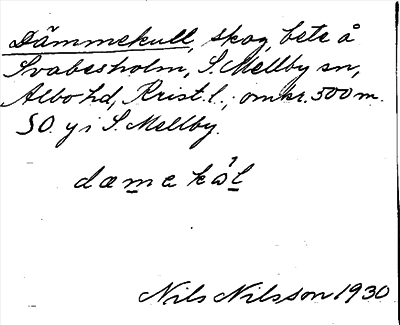 Dämmekull, skog, bete å
Svabesholm, S. Mellby sn,
Albo hd, Krist. l.; omkr. 500 m.
SO. y i S. Mellby.
Nils Nilsson 1930